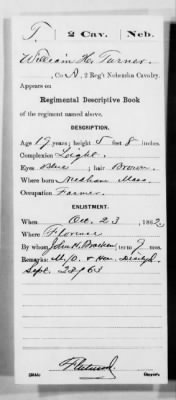 T | 2 Cav. | Neb.
William H. Turner
, Co. A, 2 Reg't Nebraska Cavalry.
Appears on
Regimental Descriptive Book
of the regiment named above.
DESCRIPTION.
Age 19 years; height 5 feet 8 inches.
Complexion Light.
Eyes Blue; hair Brown.
Where born Mass.
Occupation Farmer.
ENLISTMENT.
When Oct. 23, 1862.
Where Florence
By whom John H. Bracken; term 9 mos.
Remarks: M. O. & Hon. Disch'd
Sept. 28 / 63
Copyist.